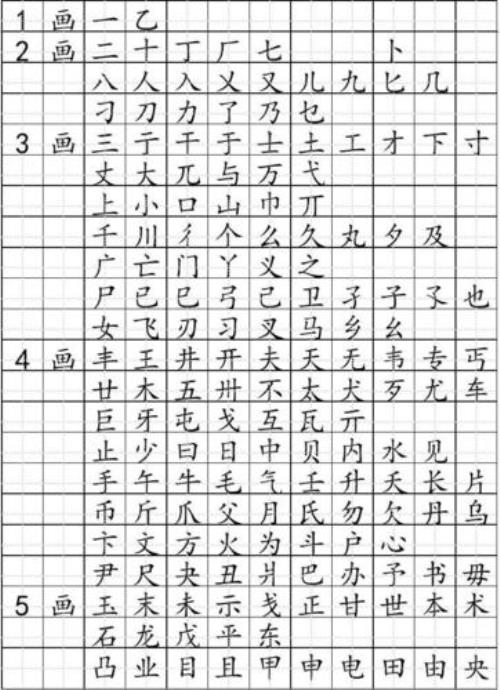 1 画 一 乙
2 画 二 十 丁 厂 七 卜
八 人 入 乂 又 儿 九 匕 几
刁 刀 力 了 乃 乜
3 画 三 亍 干 于 士 土 工 才 下 寸
丈 大 兀 与 万 弋
上 小 口 山 巾 丌
千 川 彳 个 么 久 丸 夕 及
广 亡 门 丫 义 之
尸 已 巳 弓 己 卫 孑 子 孓 也
女 飞 刃 习 叉 马 乡 幺
4 画 丰 王 井 开 夫 天 无 韦 专 丐
廿 木 五 卅 不 太 犬 歹 尤 车
巨 牙 屯 戈 互 瓦 亓
止 少 曰 日 中 贝 内 水 见
手 午 牛 毛 气 壬 升 夭 长 片
币 斤 爪 父 月 氏 勿 欠 丹 乌
卞 文 方 火 为 斗 户 心
尹 尺 夬 丑 爿 巴 办 予 书 毋
5 画 玉 末 未 示 戋 正 甘 世 本 术
石 龙 戊 平 东
凸 业 目 且 甲 申 电 田 由 央